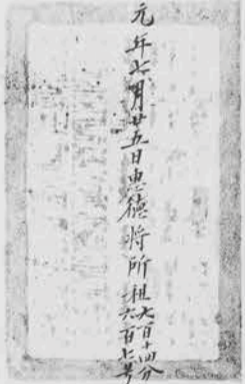 元年七月廿五日忠德將所租
百十四分
六百七号